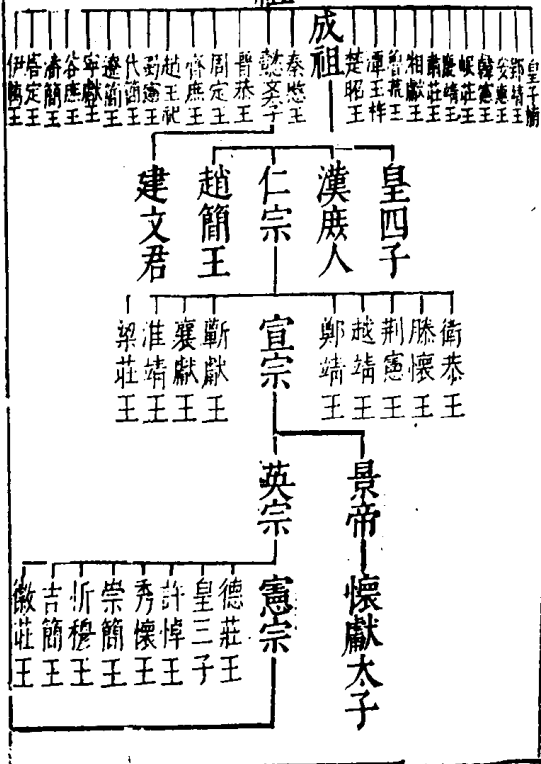 皇子楠
郢靖王
安惠王
韓憲王
岷莊王
慶靖王
肅莊王
湘獻王
魯荒王
潭王梓
楚昭王
成祖
秦愍王
懿文子
晉恭王
周定王
齊庶王
趙王杞
蜀憲王
代簡王
遼簡王
寧獻王
谷庶王
瀋簡王
唐定王
伊厲王
皇四子
漢庶人
仁宗
趙簡王
建文君
衛恭王
滕懷王
荆憲王
越靖王
鄭靖王
宣宗
蘄獻王
襄獻王
淮靖王
梁莊王
景帝
英宗
懷獻太子
憲宗
德莊王
皇三子
許悼王
秀懷王
崇簡王
忻穆王
吉簡王
徽莊王